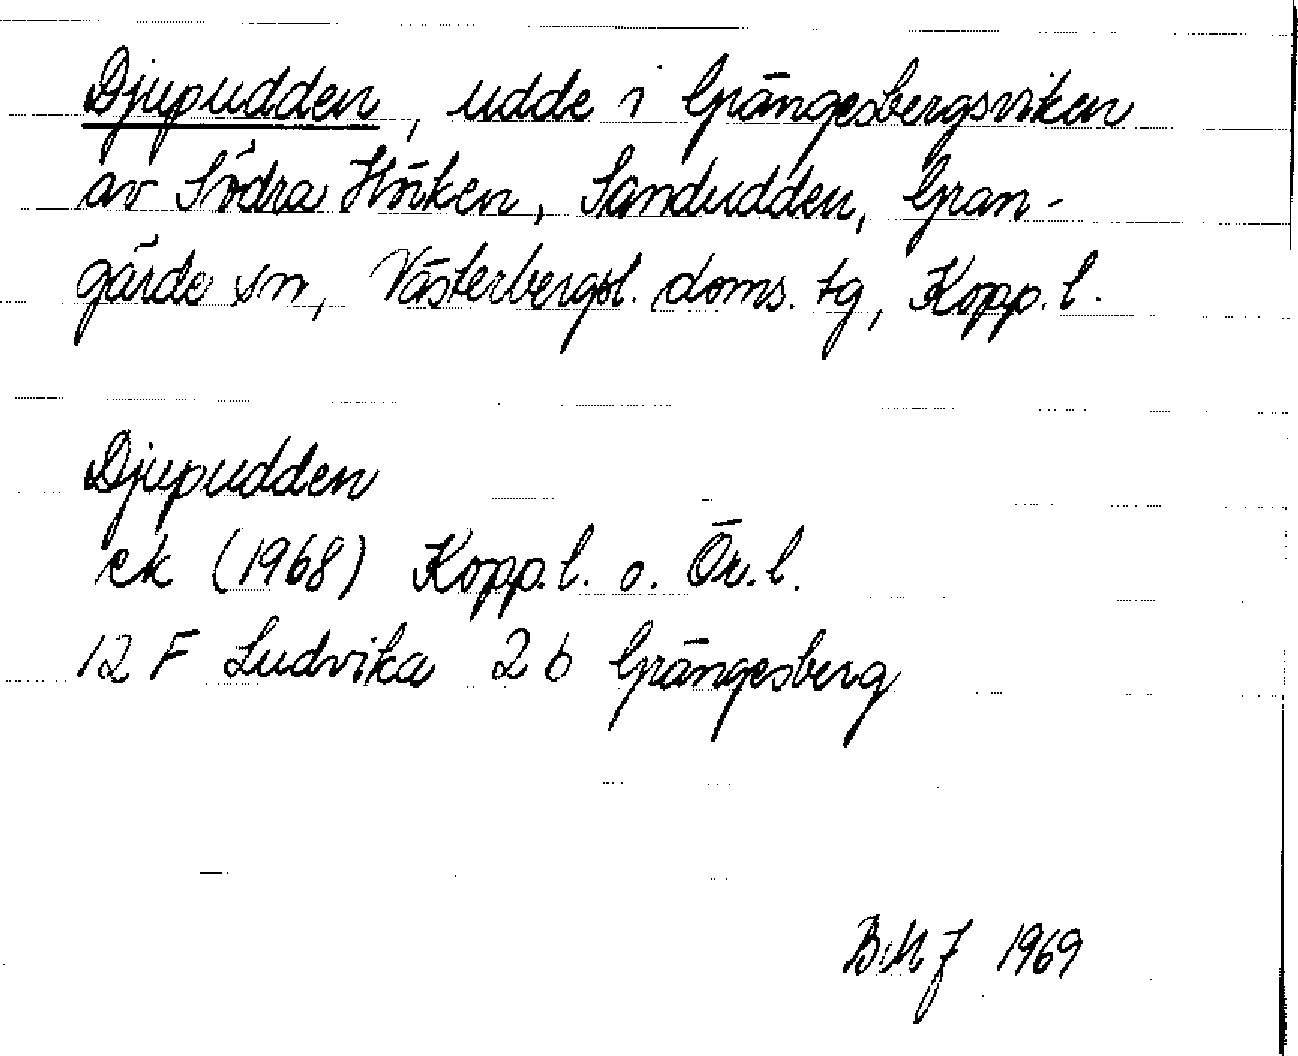 Djupudden, udde i Grängesbergsviken
av Södra Hörken, Sandudden, Gran-
gärde sn, Västerbergsl. doms. tg, Kopp. l.
Djupudden
ek (1968) Kopp. l. o. Ör. l.
12 F Ludvika 2 b Grängesberg
BMJ 1969